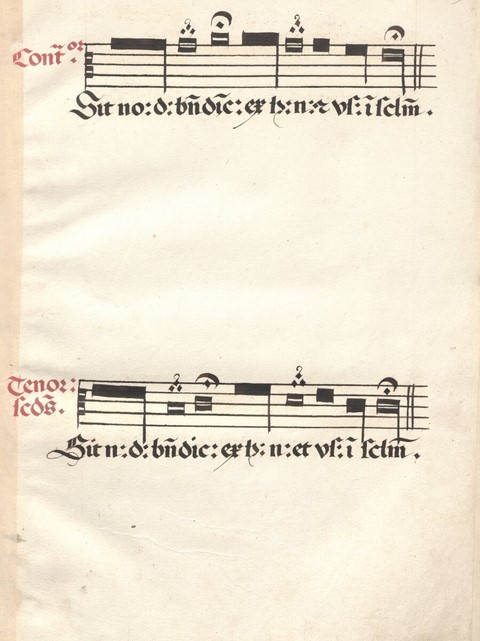 Cont̃or.
Sit no: d: bñdic̃: ex h: n: ⁊ vſ: ĩ ſclm̃.
Tenor:
ſcds̃.
Sit n: d: bñdic: ex h: n: et vſ: ĩ ſclm̃.